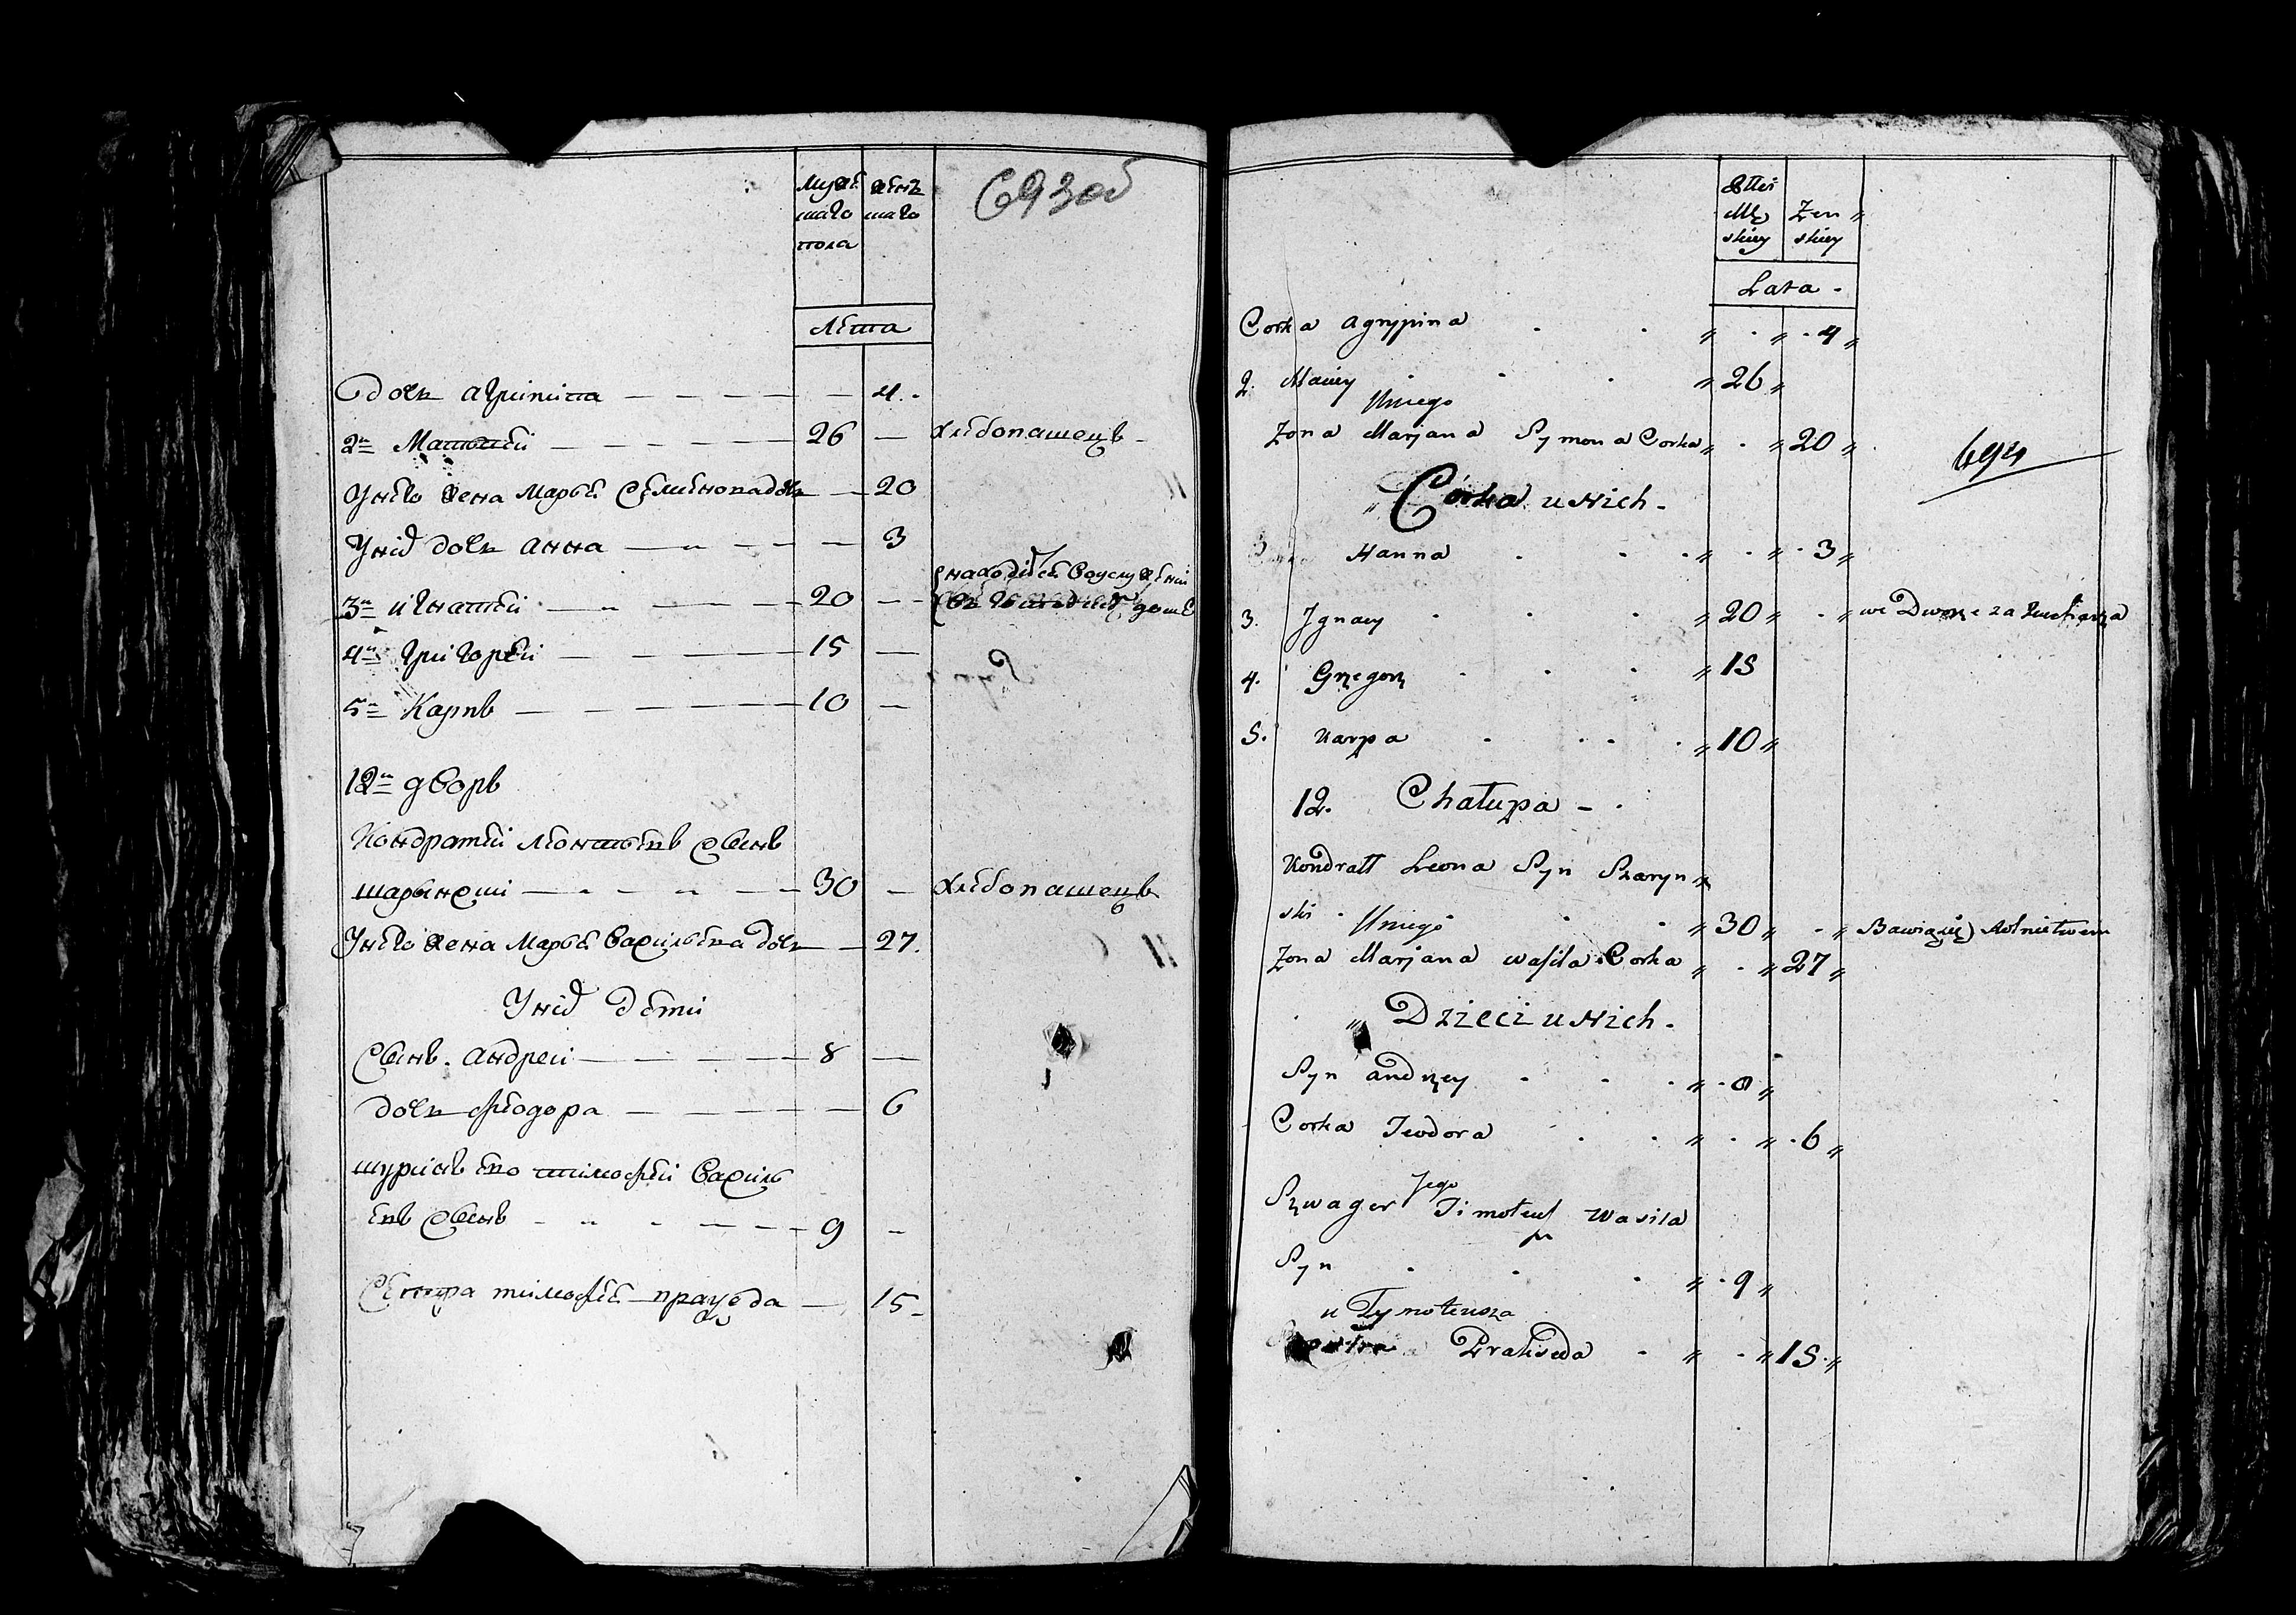 693об
Муже женъ
скаго скаго
пола
Лета
дочь Агрипина 4
2й Матвей 26 хлебопашецъ
У него жена Марья Семенова дочь 20
У них дочь Анна 3
3й Игнатей 20 находится в услужении
доме
4й Григорей 15
5й Карпъ 10
12й дворъ
Кондратей Леонтьевъ сынъ
шарынски 30 хлебопашецъ
У него жена Марья Васильева дочь 27
У них дети
Сынъ Андрей 8
дочь Феодора 6
шуринъ ево Тимофей Василь
евъ сынъ 9
Сестра Тимофея Праскеда 15
694
Męz Zen
skiey skiey
Lata
Corka Agrypina 4
2. Maciey 26
Uniego
Zona Marjana Symona Corka 20
Córka u Nich
Hanna 3
3. Jgnacy 20 we Dworze za Kucharza
4. Grzegorz 15
5. Karpa 10
12. Chałupa
Kondratt Leona Syn Szaryn
ski 30 Bawiąsię Rolnictwem
Uniego
Zona Marjana Wasila Corka 27
Dzieci u Nich
Syn Andrzey 8
Corka Teodora 6
Szwager Jego Timoteusz Wasila
Syn 9
u Tymoteusza
Siostra Prakseda 15